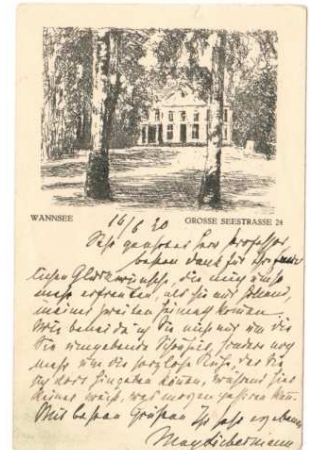 WANNSEE
GROSSE SEESTRASSE 24
16/6 20
Sehr geehrter Herr Professor,
besten Dank für Ihre freund-
lichen Glückwünsche, die mich umso
mehr erfreuten, als sie aus Holland,
meiner zweiten Heimat kamen.
Wie beneide ich Sie nicht nur um die
Sie umgebende Schönheit, sondern noch
mehr um die sorglose Ruhe, der Sie
sich dort hingeben können, während hier
keiner weiß, was morgen passiren kann.
Mit besten Grüßen Ihr sehr ergebener
Max Liebermann